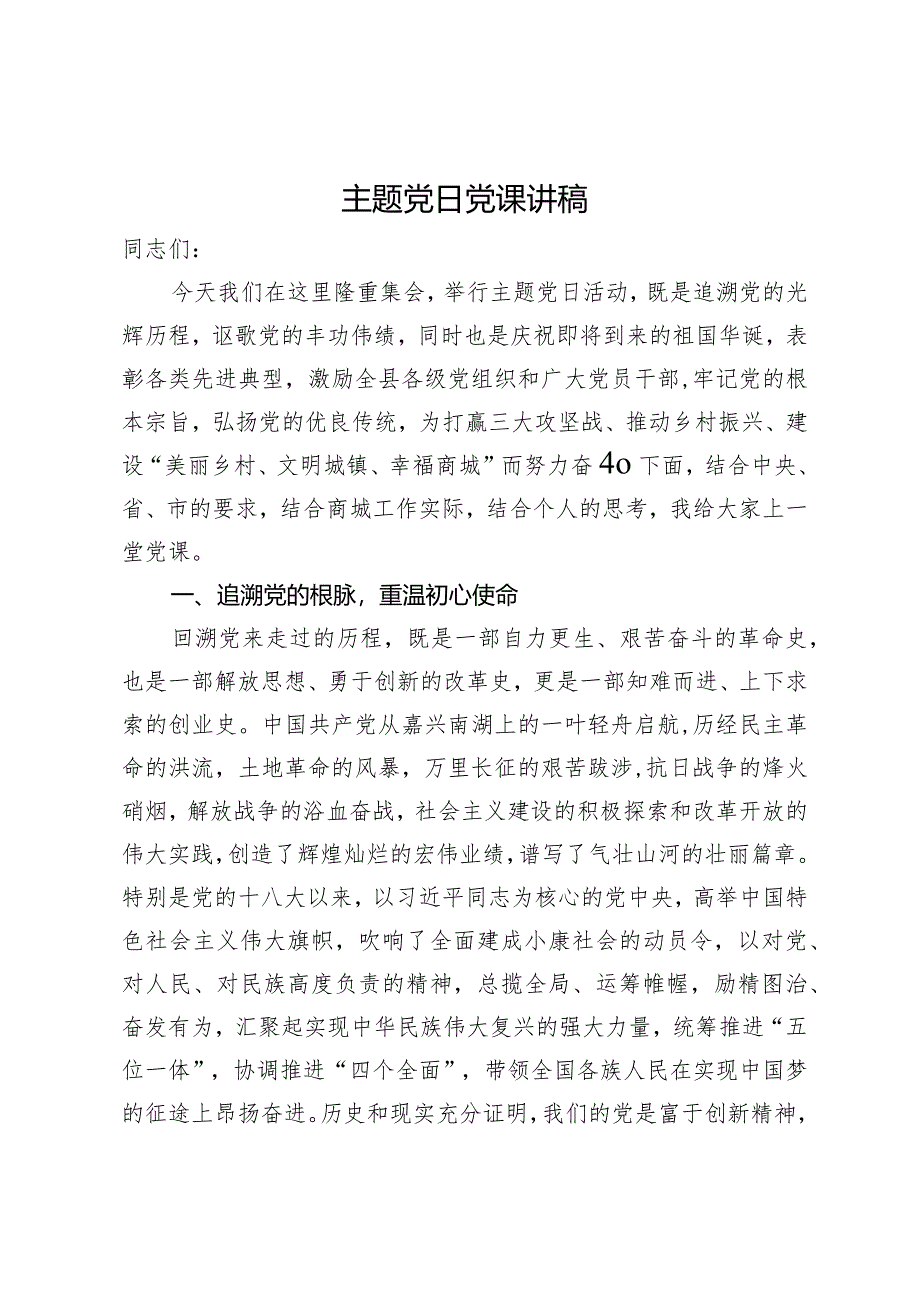 主题党日党课讲稿
同志们：
今天我们在这里隆重集会，举行主题党日活动，既是追溯党的光
辉历程，讴歌党的丰功伟绩，同时也是庆祝即将到来的祖国华诞，表
彰各类先进典型，激励全县各级党组织和广大党员干部,牢记党的根
本宗旨，弘扬党的优良传统，为打赢三大攻坚战、推动乡村振兴、建
设“美丽乡村、文明城镇、幸福商城”而努力奋4o下面，结合中央、
省、市的要求，结合商城工作实际，结合个人的思考，我给大家上一
堂党课。
一、追溯党的根脉，重温初心使命
回溯党来走过的历程，既是一部自力更生、艰苦奋斗的革命史，
也是一部解放思想、勇于创新的改革史，更是一部知难而进、上下求
索的创业史。中国共产党从嘉兴南湖上的一叶轻舟启航,历经民主革
命的洪流，土地革命的风暴，万里长征的艰苦跋涉,抗日战争的烽火
硝烟，解放战争的浴血奋战，社会主义建设的积极探索和改革开放的
伟大实践，创造了辉煌灿烂的宏伟业绩，谱写了气壮山河的壮丽篇章。
特别是党的十八大以来，以习近平同志为核心的党中央，高举中国特
色社会主义伟大旗帜，吹响了全面建成小康社会的动员令，以对党、
对人民、对民族高度负责的精神，总揽全局、运筹帷幄，励精图治、
奋发有为，汇聚起实现中华民族伟大复兴的强大力量，统筹推进“五
位一体”，协调推进“四个全面”，带领全国各族人民在实现中国梦
的征途上昂扬奋进。历史和现实充分证明，我们的党是富于创新精神，